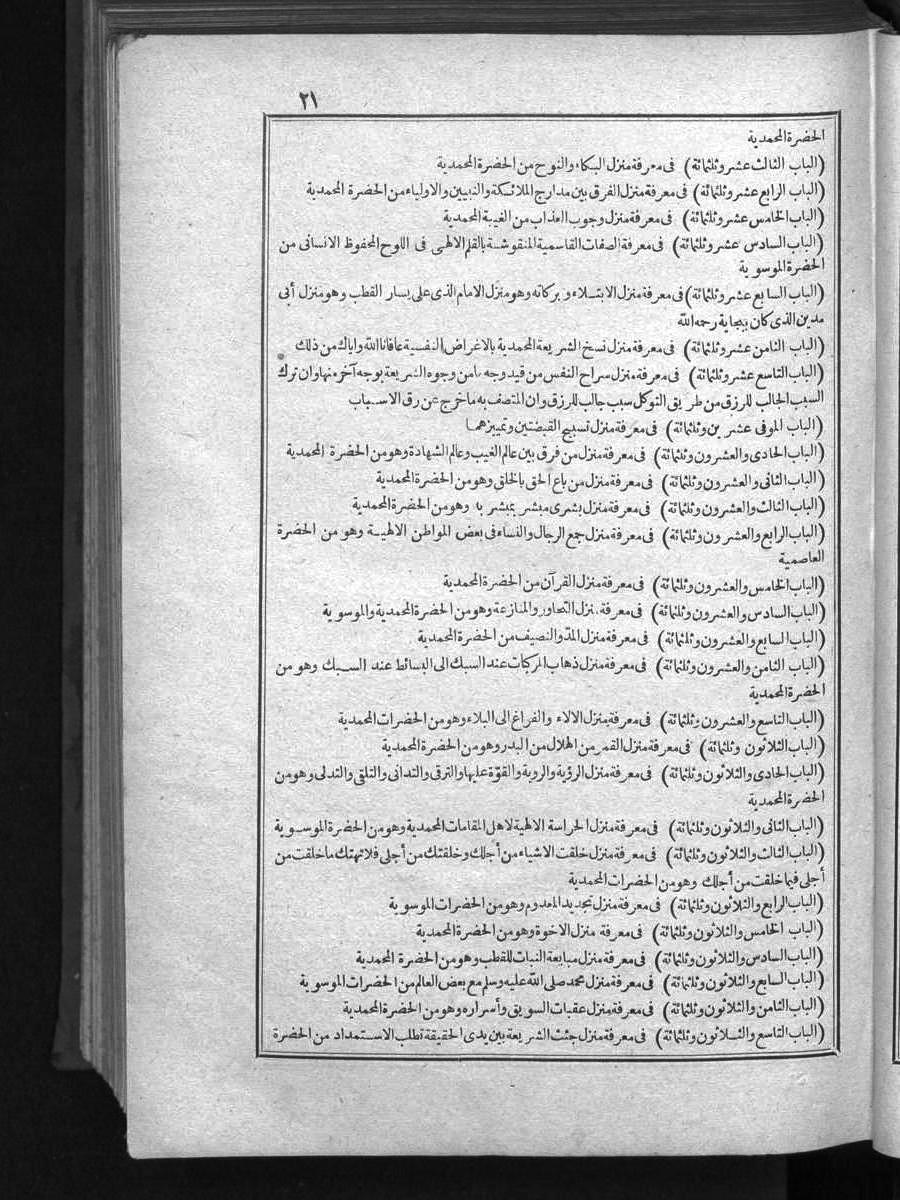 ٢١
الحضرة المحمدية
(الباب الثالث عشر وثلثمائة) فى معرفة منزل البكاء والنوح من الحضرة المحمدية
(الباب الرابع عشر وثلثمائة) فى معرفة منزل الفرق بين مدارج الملائكة والنبيين والاولياء من الحضرة المحمدية
(الباب الخامس عشر وثلثمائة) فى معرفة منزل وجوب العذاب من الغيبة المحمدية
(الباب السادس عشر وثلثمائة) فى معرفة الصفات القاسمية المنقوشة بالقلم الالهى فى اللوح المحفوظ الانسانى من
الحضرة الموسوية
(الباب السابع عشر وثلثمائة) فى معرفة منزل الابتلاء وبركاته وهو منزل الامام الذى على يسار القطب وهو منزل أبى
مدين الذى كان ببجاية رحمه الله
(الباب الثامن عشر وثلثمائة) فى معرفة منزل نسخ الشريعة المحمدية بالاغراض النفسية عافانا الله واياك من ذلك
(الباب التاسع عشر وثلثمائة) فى معرفة منزل سراح النفس من قيد وجه مامن وجوه الشريعة بوجه آخر منها وان ترك
السبب الجالب للرزق من طريق التوكل سبب جالب للرزق وان المتصف به ماخرج عن رق الاسباب
(الباب الموفى عشرين وثلثمائة) فى معرفة منزل تسبيح القبضتين وتمييزهما
(الباب الحادى والعشرون وثلثمائة) فى معرفة منزل من فرق بين عالم الغيب وعالم الشهادة وهو من الحضرة المحمدية
(الباب الثانى والعشرون وثلثمائة) فى معرفة منزل من باع الحق بالخلق وهو من الحضرة المحمدية
(الباب الثالث والعشرون وثلثمائة) فى معرفة منزل بشرى مبشر بمبشر به وهو من الحضرة المحمدية
(الباب الرابع والعشرون وثلثمائة) فى معرفة منزل جمع الرجال والنساء فى بعض المواطن الالهية وهو من الحضرة
العاصمية
(الباب الخامس والعشرون وثلثمائة) فى معرفة منزل القرآن من الحضرة المحمدية
(الباب السادس والعشرون وثلثمائة) فى معرفة منزل التحاور والمنازعة وهو من الحضرة المحمدية والموسوية
(الباب السابع والعشرون وثلثمائة) فى معرفة منزل المدّ والنصيف من الحضرة المحمدية
(الباب الثامن والعشرون وثلثمائة) فى معرفة منزل ذهاب المركبات عند السبك الى البسائط عند السبك وهو من
الحضرة المحمدية
(الباب التاسع والعشرون وثلثمائة) فى معرفة منزل الالاء والفراغ الى البلاء وهو من الحضرات المحمدية
(الباب الثلاثون وثلثمائة) فى معرفة منزل القمر من الهلال من البدر وهو من الحضرة المحمدية
(الباب الحادى والثلاثون وثلثمائة) فى معرفة منزل الرؤية والروية والقوّة عليها والترقى والتدانى والتلقى والتدلى وهو من
الحضرة المحمدية
(الباب الثانى والثلاثون وثلثمائة) فى معرفة منزل الحراسة الالهية لاهل المقامات المحمدية وهو من الحضرة الموسوية
(الباب الثالث والثلاثون وثلثمائة) فى معرفة منزل خلقت الاشياء من أجلك وخلقتك من أجلى فلا تهتك ماخلقت من
أجلى فيما خلقت من أجلك وهو من الحضرات المحمدية
(الباب الرابع والثلاثون وثلثمائة) فى معرفة منزل تجديد المعدوم وهو من الحضرات الموسوية
(الباب الخامس والثلاثون وثلثمائة) فى معرفة منزل الاخوة وهو من الحضرة المحمدية
(الباب السادس والثلاثون وثلثمائة) فى معرفة منزل مبايعة النبات للقطب وهو من الحضرة المحمدية
(الباب السابع والثلاثون وثلثمائة) فى معرفة منزل محمد صلى الله عليه وسلم مع بعض العالم من الحضرات الموسوية
(الباب الثامن والثلاثون وثلثمائة) فى معرفة منزل عقبات السويق وأسراره وهو من الحضرة المحمدية
(الباب التاسع والثلاثون وثلثمائة) فى معرفة منزل جثت الشريعة بين يدى الحقيقة تطلب الاستمداد من الحضرة